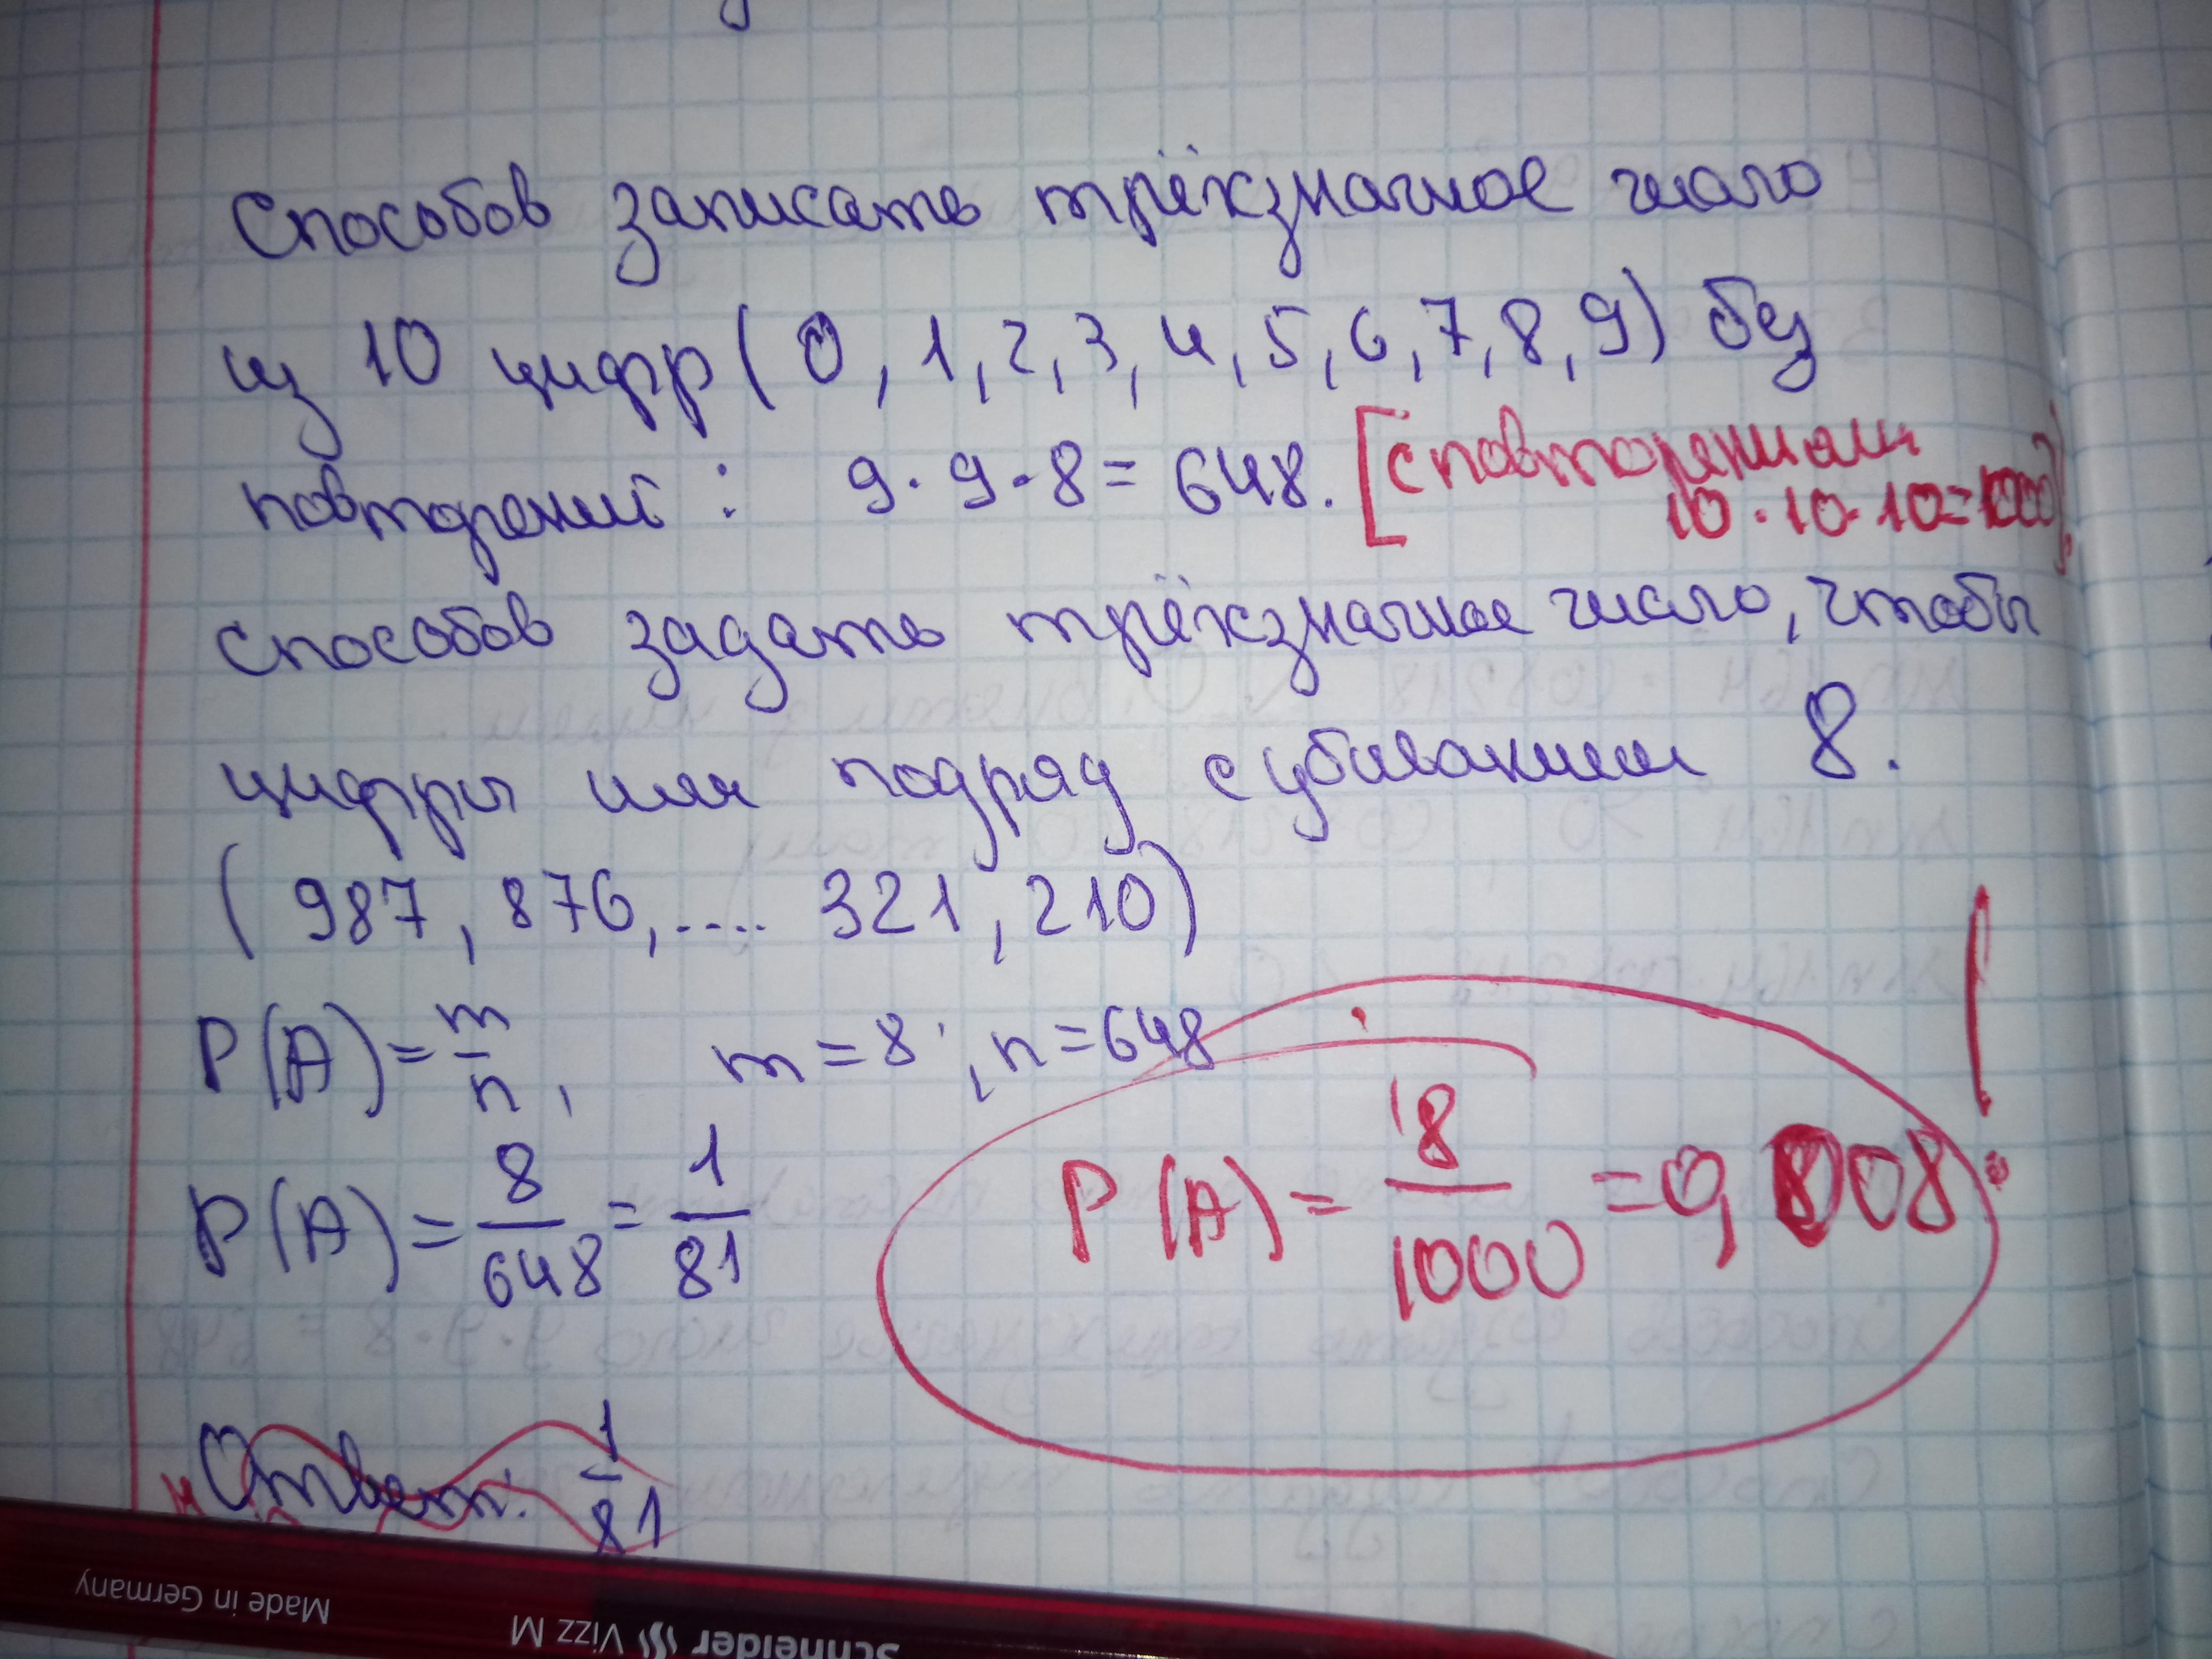 способов записать трёхзначное число
из 10 цифр ( 0, 1, 2, 3, 4, 5, 6, 7, 8, 9) без
повторений : 9 · 9 · 8 = 648. [с повторениями
10 · 10 · 10 = 1000].
способов задать трёхзначное число, чтобы
цифры шли подряд с убыванием 8.
( 987, 876, .... 321, 210)
P(A) = m/n, m = 8 ; n = 648
P(A) = 8/648 = 1/81
P(A) = 8/1000 = 0,008 !
Ответ: 1/81
Made in Germany
Schneider Vizz M